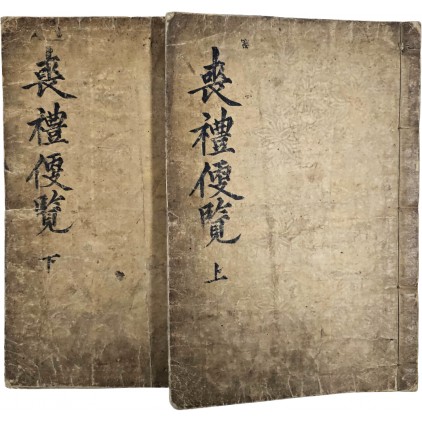 喪禮便覽
上
喪禮便覽
下